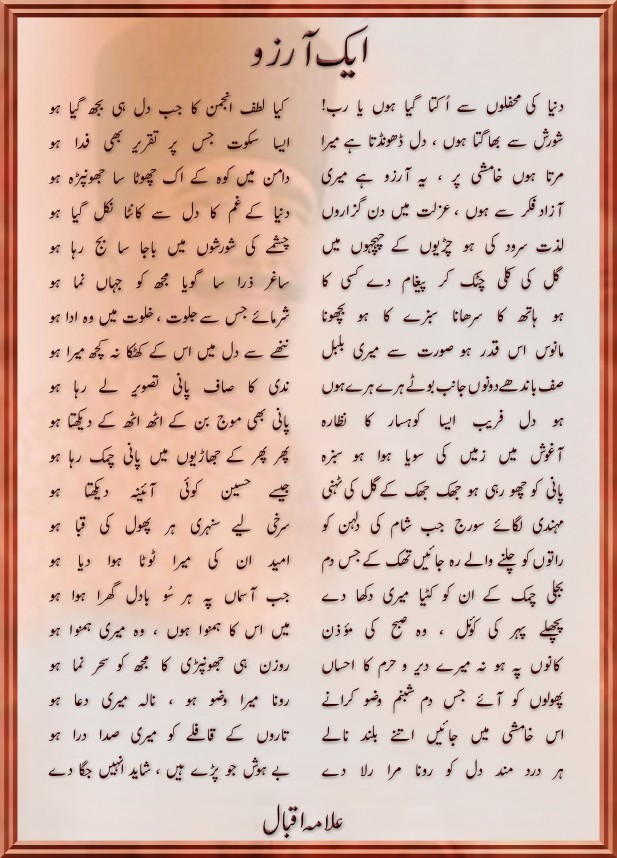 ایک آرزو
دنیا کی محفلوں سے اُکتا گیا ہوں یا رب! کیا لطف انجمن کا جب دل ہی بجھ گیا ہو
شورش سے بھاگتا ہوں ، دل ڈھونڈتا ہے میرا ایسا سکوت جس پر تقریر بھی فدا ہو
مرتا ہوں خامشی پر ، یہ آرزو ہے میری دامن میں کوہ کے اک چھوٹا سا جھونپڑہ ہو
آزاد فکر سے ہوں ، عزلت میں دن گزاروں دنیا کے غم کا دل سے کانٹا نکل گیا ہو
لذت سرود کی ہو چڑیوں کے چہچہوں میں چشمے کی شورشوں میں باجا سا بج رہا ہو
گل کی کلی چٹک کر پیغام دے کسی کا ساغر ذرا سا گویا مجھ کو جہاں نما ہو
ہو ہاتھ کا سرھانا سبزے کا ہو بچھونا شرمائے جس سے جلوت ، خلوت میں وہ ادا ہو
مانوس اس قدر ہو صورت سے میری بلبل ننھے سے دل میں اس کے کھٹکا نہ کچھ میرا ہو
صف باندھے دونوں جانب بوٹے ہرے ہرے ہوں ندی کا صاف پانی تصویر لے رہا ہو
ہو دل فریب ایسا کوہسار کا نظارہ پانی بھی موج بن کے اٹھ اٹھ کے دیکھتا ہو
آغوش میں زمیں کی سویا ہوا ہو سبزہ پھر پھر کے جھاڑیوں میں پانی چمک رہا ہو
پانی کو چھو رہی ہو جھک جھک کے گل کی ٹہنی جیسے حسین کوئی آئینہ دیکھتا ہو
مہندی لگائے سورج جب شام کی دلہن کو سرخی لیے سنہری ہر پھول کی قبا ہو
راتوں کو چلنے والے رہ جائیں تھک کے جس دم امید ان کی میرا ٹوٹا ہوا دیا ہو
بجلی چمک کے ان کو کٹیا میری دکھا دے جب آسماں پہ ہر سُو بادل گھرا ہوا ہو
پچھلے پہر کی کوئل ، وہ صبح کی مؤذن میں اس کا ہمنوا ہوں ، وہ میری ہمنوا ہو
کانوں پہ ہو نہ میرے دیر و حرم کا احساں روزن ہی جھونپڑی کا مجھ کو سحر نما ہو
پھولوں کو آئے جس دم شبنم وضو کرانے رونا میرا وضو ہو ، نالہ میری دعا ہو
اس خامشی میں جائیں اتنے بلند نالے تاروں کے قافلے کو میری صدا درا ہو
ہر درد مند دل کو رونا مرا رلا دے بے ہوش جو پڑے ہیں ، شاید انہیں جگا دے
علامہ اقبال